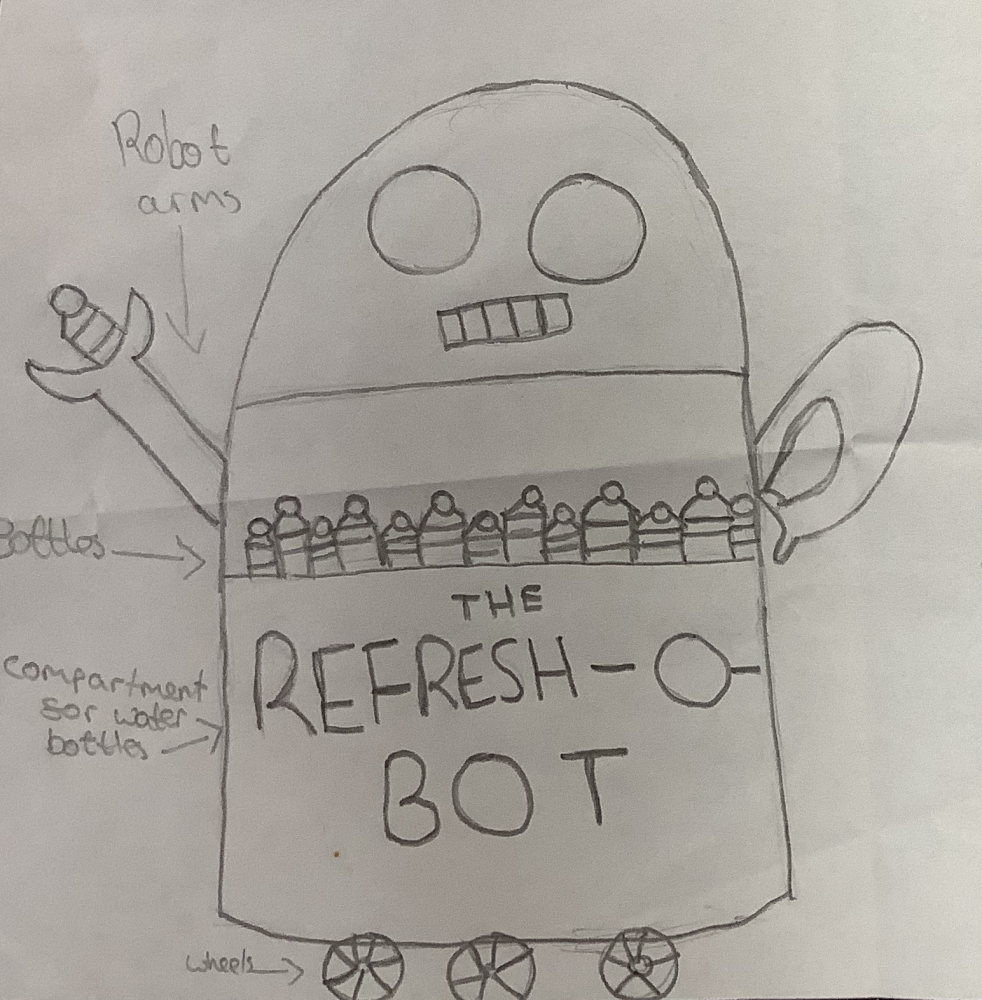 Robot
arms
Bottles
THE
REFRESH-O-
BOT
compartment
sor water
bottles
wheels